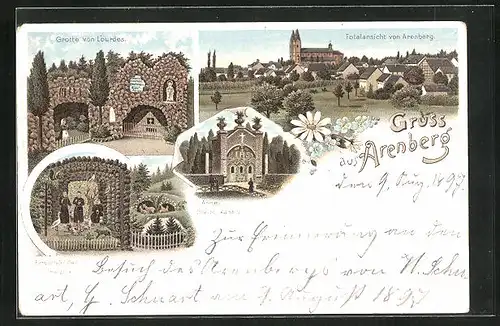 Grotte von Lourdes.
Totalansicht von Arenberg.
Gruss
aus Arenberg
den 9. Aug. 1897.
Zur Erinnerung an den
Besuch des Arenbergs von
art, Schuart am 9. August 1897